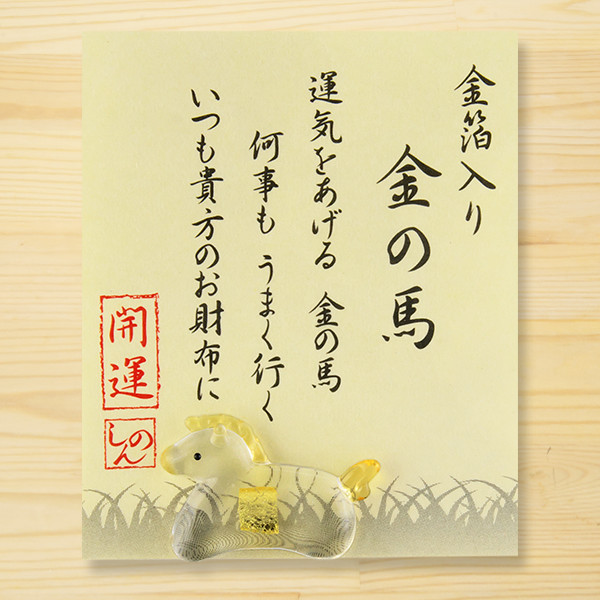 金箔入り
金の馬
運気をあげる 金の馬
何事も うまく行く
いつも貴方のお財布に
開運
しのん